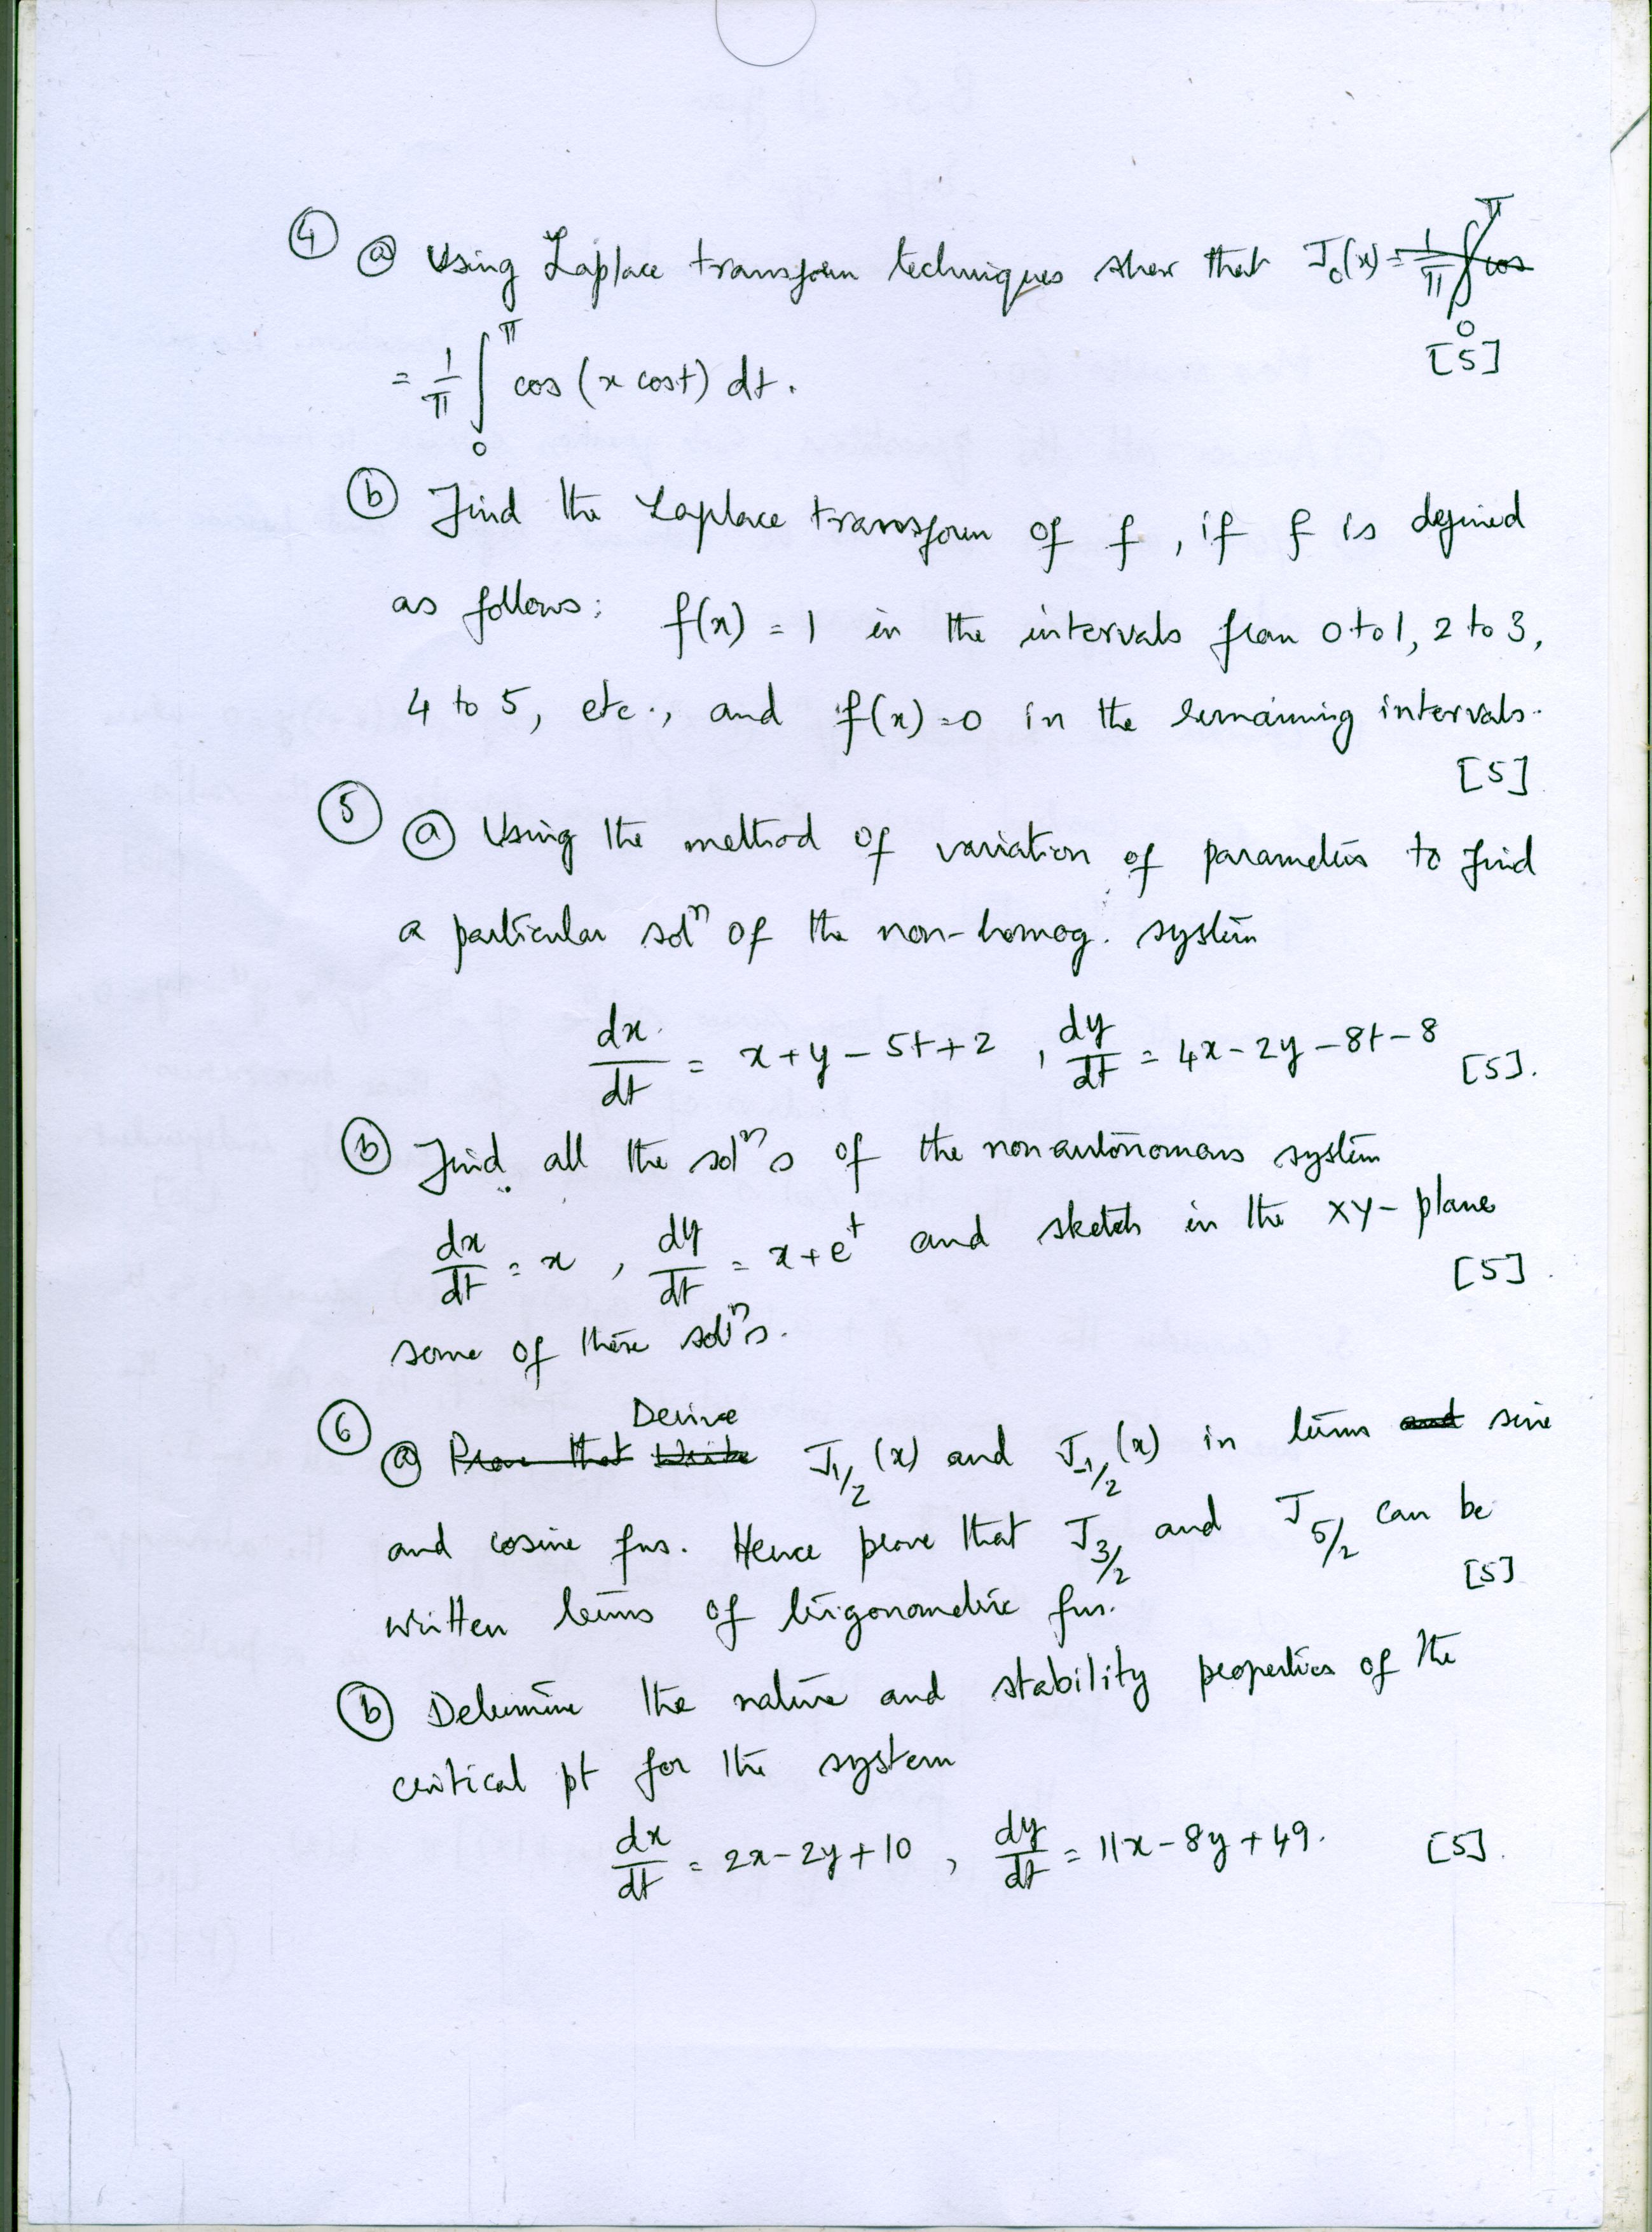 ④ ⓐ Using Laplace transform techniques show that J₀(x) =
= 1/π ∫₀^π cos (x cost) dt. [5]
ⓑ Find the Laplace transform of f, if f is defined
as follows: f(x) = 1 in the intervals from 0 to 1, 2 to 3,
4 to 5, etc., and f(x) = 0 in the remaining intervals.
[5]
⑤ ⓐ Using the method of variation of parameters to find
a particular solⁿ of the non-homog. system
dx/dt = x+y-5t+2, dy/dt = 4x-2y-8t-8 [5].
ⓑ Find all the solⁿs of the nonautonomous system
dx/dt = x, dy/dt = x+e^t and sketch in the XY-plane
[5].
some of these solⁿs.
⑥ ⓐ Derive J_{1/2}(x) and J_{-1/2}(x) in terms sine
and cosine fns. Hence prove that J_{3/2} and J_{5/2} can be
written terms of trigonometric fns. [5]
ⓑ Determine the nature and stability properties of the
critical pt for the system
dx/dt = 2x-2y+10, dy/dt = 11x-8y+49. [5].